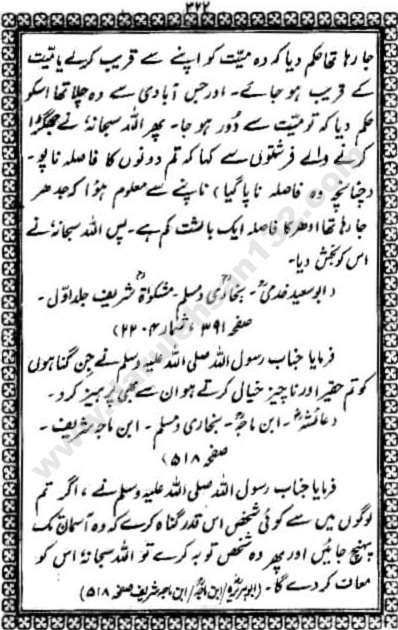 ۳۶۲
جا رہا تھا حکم دیا کہ وہ میّت کو اپنے سے قریب کرلے یا میّت
کے قریب ہو جائے۔ اور جس آبادی سے وہ چلا تھا اسکو
حکم دیا کہ تو میّت سے دُور ہو جا۔ پھر اللہ سبحانہٗ نے جھگڑا
کرنے والے فرشتوں سے کہا کہ تم دونوں کا فاصلہ ناپو۔
(چنانچہ وہ فاصلہ ناپا گیا) ناپنے سے معلوم ہوا کہ جدھر
جا رہا تھا ادھر کا فاصلہ ایک بالشت کم ہے۔ پس اللہ سبحانہٗ نے
اس کو بخش دیا۔
(ابوسعید خدریؓ۔ بخاریؒ ومسلم۔ مشکوٰۃ شریف جلد اوّل۔
صفحہ ۳۹۱، شمار ۲۲۰۴)
فرمایا جناب رسول اللہ صلی اللہ علیہ وسلم نے جن گناہوں
کو تم حقیر اور ناچیز خیال کرتے ہو ان سے بھی پرہیز کرو۔
(عائشہؓ۔ ابن ماجہؒ۔ بخاریؒ ومسلم۔ ابن ماجہ شریف۔
صفحہ ۵۱۸)
فرمایا جناب رسول اللہ صلی اللہ علیہ وسلم نے، اگر تم
لوگوں میں سے کوئی شخص اس قدر گناہ کرے کہ وہ آسمان تک
پہنچ جائیں اور پھر وہ شخص توبہ کرے تو اللہ سبحانہٗ اس کو
معاف کر دے گا۔ (ابوہریرہؓ/ابن ماجہؒ/ابن ماجہ شریف صفحہ ۵۱۸)